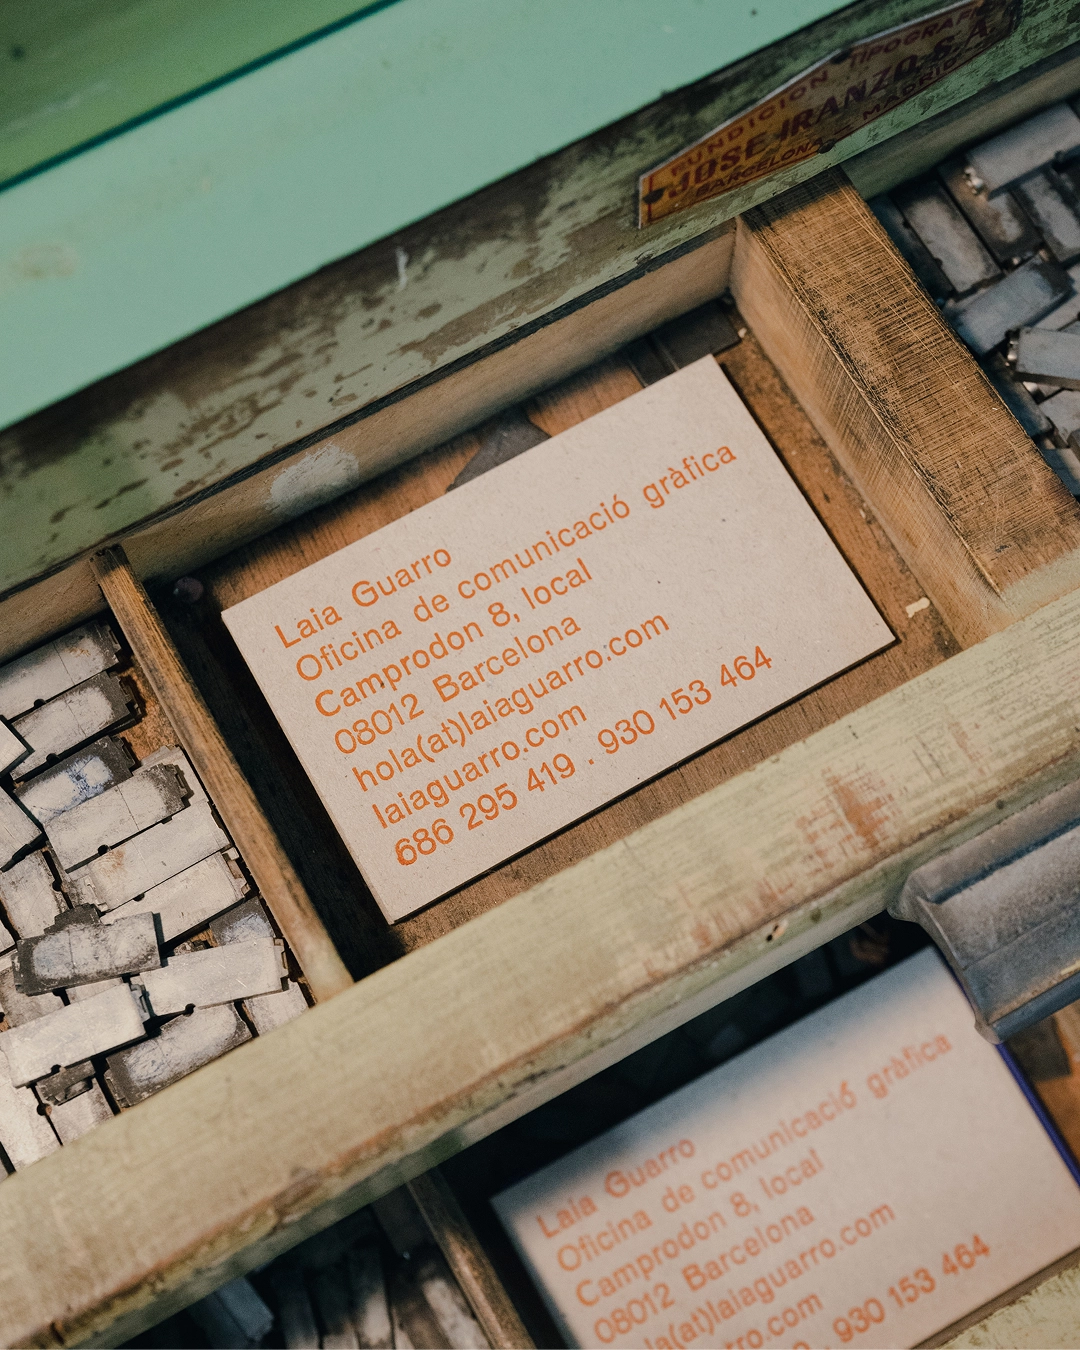 FUNDICION TIPOGRAFICA
JOSE IRANZO S.A.
BARCELONA - MADRID
Laia Guarro
Oficina de comunicació gràfica
Camprodon 8, local
08012 Barcelona
hola(at)laiaguarro.com
laiaguarro.com
686 295 419 . 930 153 464
Laia Guarro
Oficina de comunicació gràfica
Camprodon 8, local
08012 Barcelona
la(at)laiaguarro.com
rro.com
930 153 464